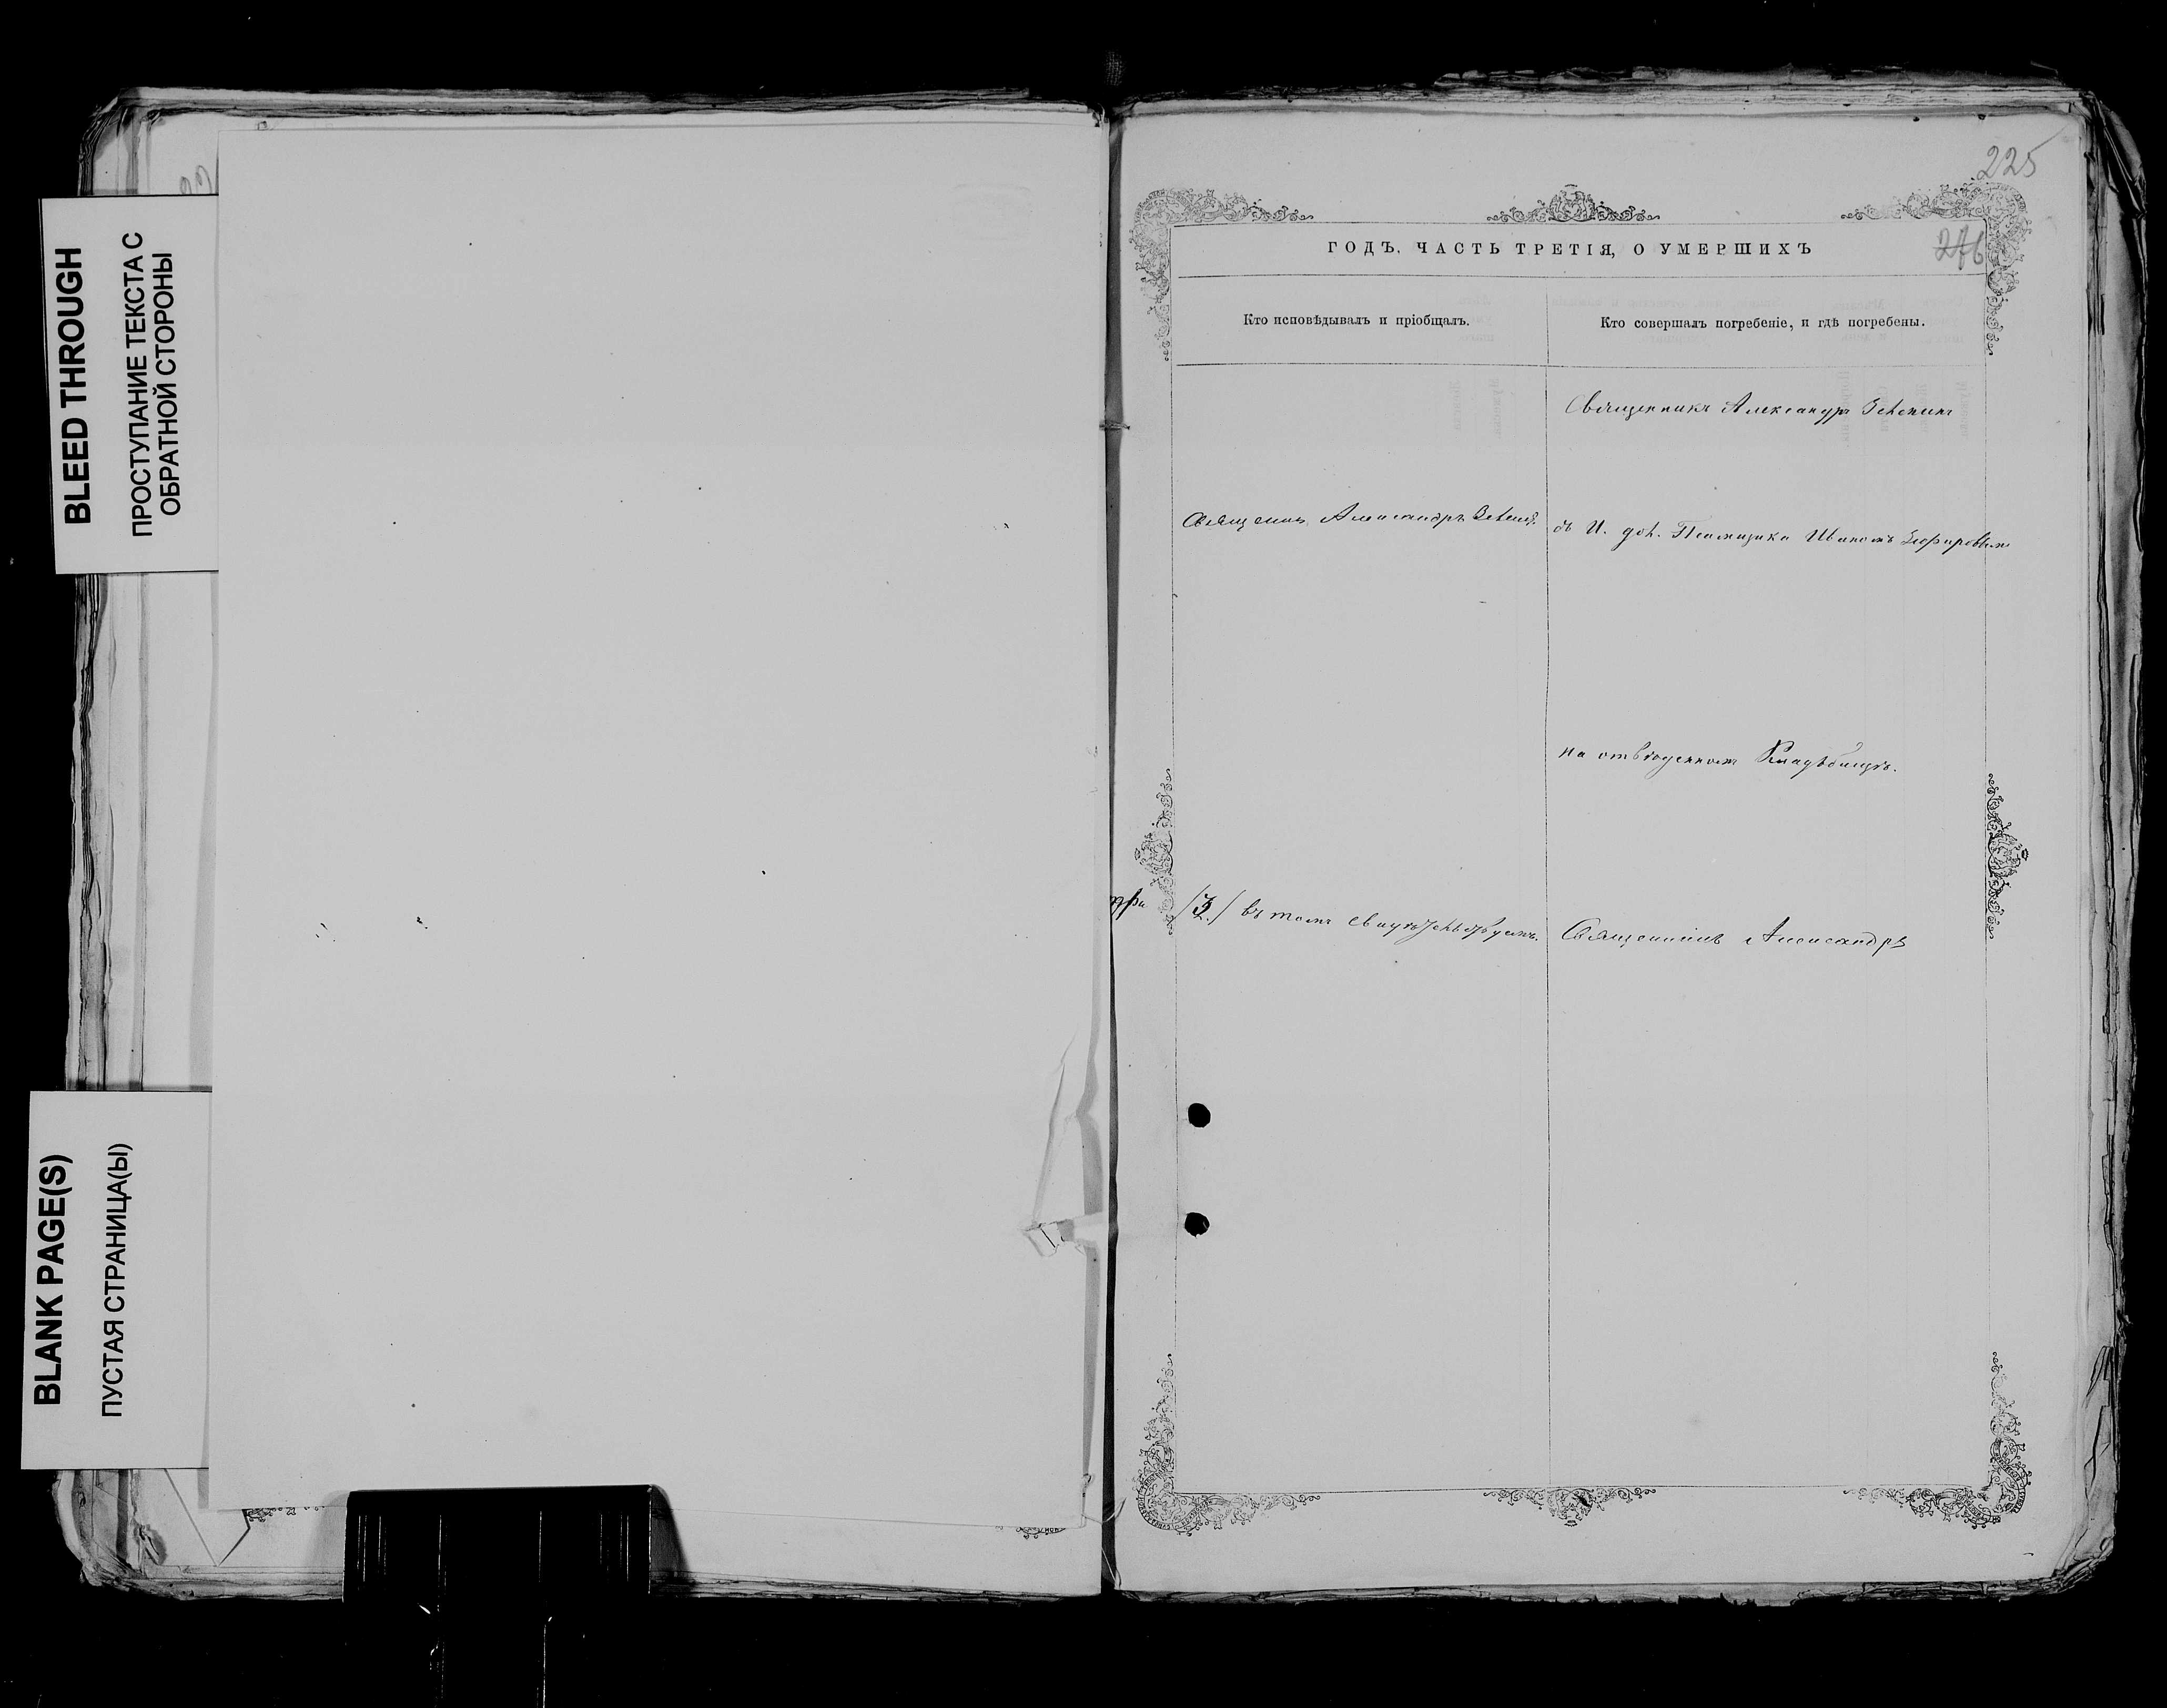 BLEED THROUGH
ПРОСТУПАНИЕ ТЕКСТА С
ОБРАТНОЙ СТОРОНЫ
BLANK PAGE(S)
ПУСТАЯ СТРАНИЦА(Ы)
225
276
ГОДЪ, ЧАСТЬ ТРЕТІЯ, О УМЕРШИХЪ
Кто исповѣдывалъ и пріобщалъ.
Кто совершалъ погребеніе, и гдѣ погребены.
Священникъ Александръ
Священникъ Александръ
съ И. дол. Псаломщика Иваномъ Зефировымъ
на отведенномъ Кладбищѣ.
три /3/ въ томъ свидѣтельствуемъ.
Священникъ Александръ